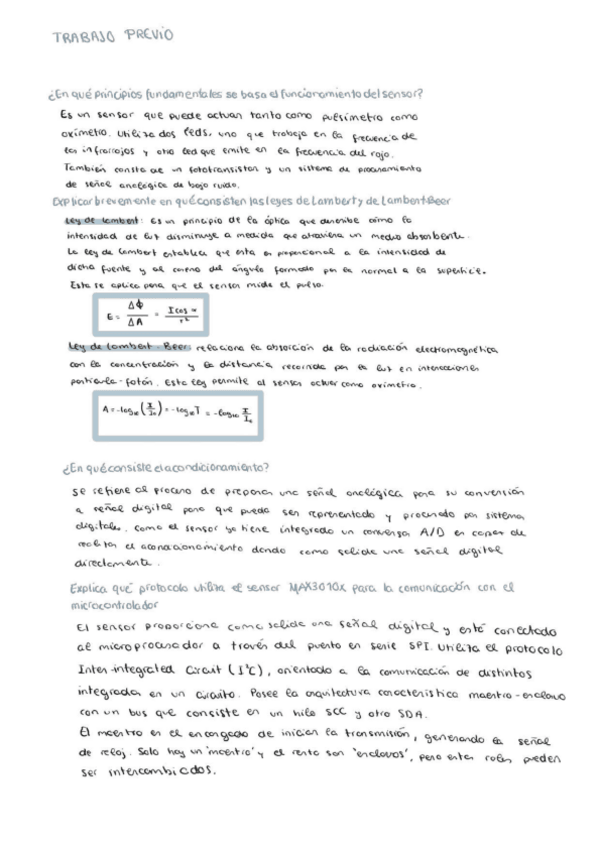 TRABAJO PREVIO
¿En qué principios fundamentales se basa el funcionamiento del sensor?
Es un sensor que puede actuar tanto como pulsímetro como
oxímetro. Utiliza dos leds, uno que trabaja en la frecuencia de
los infrarrojos y otro led que emite en la frecuencia del rojo.
También consta de un fototransistor y un sistema de procesamiento
de señal analógica de bajo ruido.
Explicar brevemente en qué consisten las leyes de Lambert y de Lambert-Beer
Ley de Lambert: Es un principio de la óptica que describe cómo la
intensidad de luz disminuye a medida que atraviesa un medio absorbente.
La ley de Lambert establece que esta es proporcional a la intensidad de
dicha fuente y al coseno del ángulo formado por la normal a la superficie.
Esta se aplica para que el sensor mida el pulso.
E = ΔΦ / ΔA = I cos α / r²
Ley de Lambert-Beer: relaciona la absorción de la radiación electromagnética
con la concentración y la distancia recorrida por la luz en interacciones
partícula-fotón. Esta ley permite al sensor actuar como oxímetro.
A = -log₁₀ (I/I₀) = -log₁₀ T = -log₁₀ I/I₀
¿En qué consiste el acondicionamiento?
se refiere al proceso de preparar una señal analógica para su conversión
a señal digital para que pueda ser representado y procesado por sistemas
digitales. Como el sensor ya tiene integrado un conversor A/D es capaz de
realizar el acondicionamiento dando como salida una señal digital
directamente.
Explica qué protocolo utiliza el sensor MAX3010X para la comunicación con el
microcontrolador
El sensor proporciona como salida una señal digital y está conectado
al microprocesador a través del puerto en serie SPI. Utiliza el protocolo
Inter-integrated Circuit (I²C), orientado a la comunicación de distintos
integrados en un circuito. Posee la arquitectura característica maestro-esclavo
con un bus que consiste en un hilo SCC y otro SDA.
El maestro es el encargado de iniciar la transmisión, generando la señal
de reloj. Solo hay un 'maestro' y el resto son 'esclavos', pero estos roles pueden
ser intercambiados.